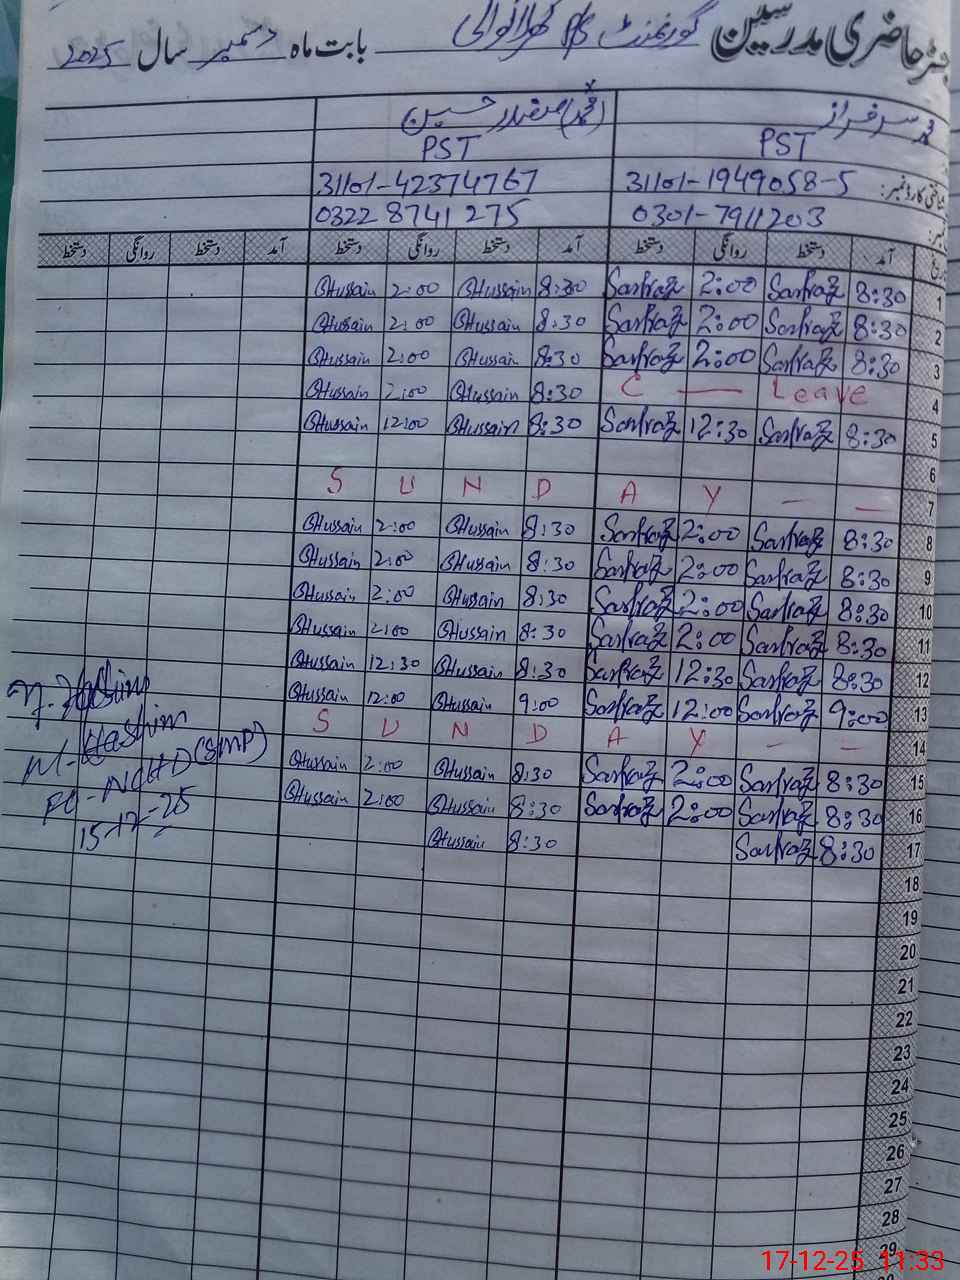 رجسٹر حاضری مدرسین گورنمنٹ P/S کھرلانوالی بابت ماہ دسمبر سال 2025
محمد سرفراز (محمد) صفدر حسین
PST PST
شناختی کارڈ نمبر: 31101-1949058-5 31101-42374767
0301-7911203 0322 8741 275
تاریخ آمد دستخط روانگی دستخط آمد دستخط روانگی دستخط آمد دستخط روانگی دستخط
1 8:30 Sarfraz 2:00 Sarfraz 8:30 Hussain 2:00 Hussain
2 8:30 Sarfraz 2:00 Sarfraz 8:30 Hussain 2:00 Hussain
3 8:30 Sarfraz 2:00 Sarfraz 8:30 Hussain 2:00 Hussain
4 C — Leave 8:30 Hussain 2:00 Hussain
5 8:30 Sarfraz 12:30 Sarfraz 8:30 Hussain 12:00 Hussain
6
7 S U N D A Y — —
8 8:30 Sarfraz 2:00 Sarfraz 8:30 Hussain 2:00 Hussain
9 8:30 Sarfraz 2:00 Sarfraz 8:30 Hussain 2:00 Hussain
10 8:30 Sarfraz 2:00 Sarfraz 8:30 Hussain 2:00 Hussain
11 8:30 Sarfraz 2:00 Sarfraz 8:30 Hussain 2:00 Hussain
12 8:30 Sarfraz 12:30 Sarfraz 8:30 Hussain 12:30 Hussain
13 9:00 Sarfraz 12:00 Sarfraz 9:00 Hussain 12:00 Hussain
14 S U N D A Y — —
15 8:30 Sarfraz 2:00 Sarfraz 8:30 Hussain 2:00 Hussain
16 8:30 Sarfraz 2:00 Sarfraz 8:30 Hussain 2:00 Hussain
17 8:30 Sarfraz 8:30 Hussain
18
19
20
21
22
23
24
25
26
27
28
29
M. Hashim
M. Hashim
PO-NCHD (SMP)
15-12-25
17-12-25 11:33